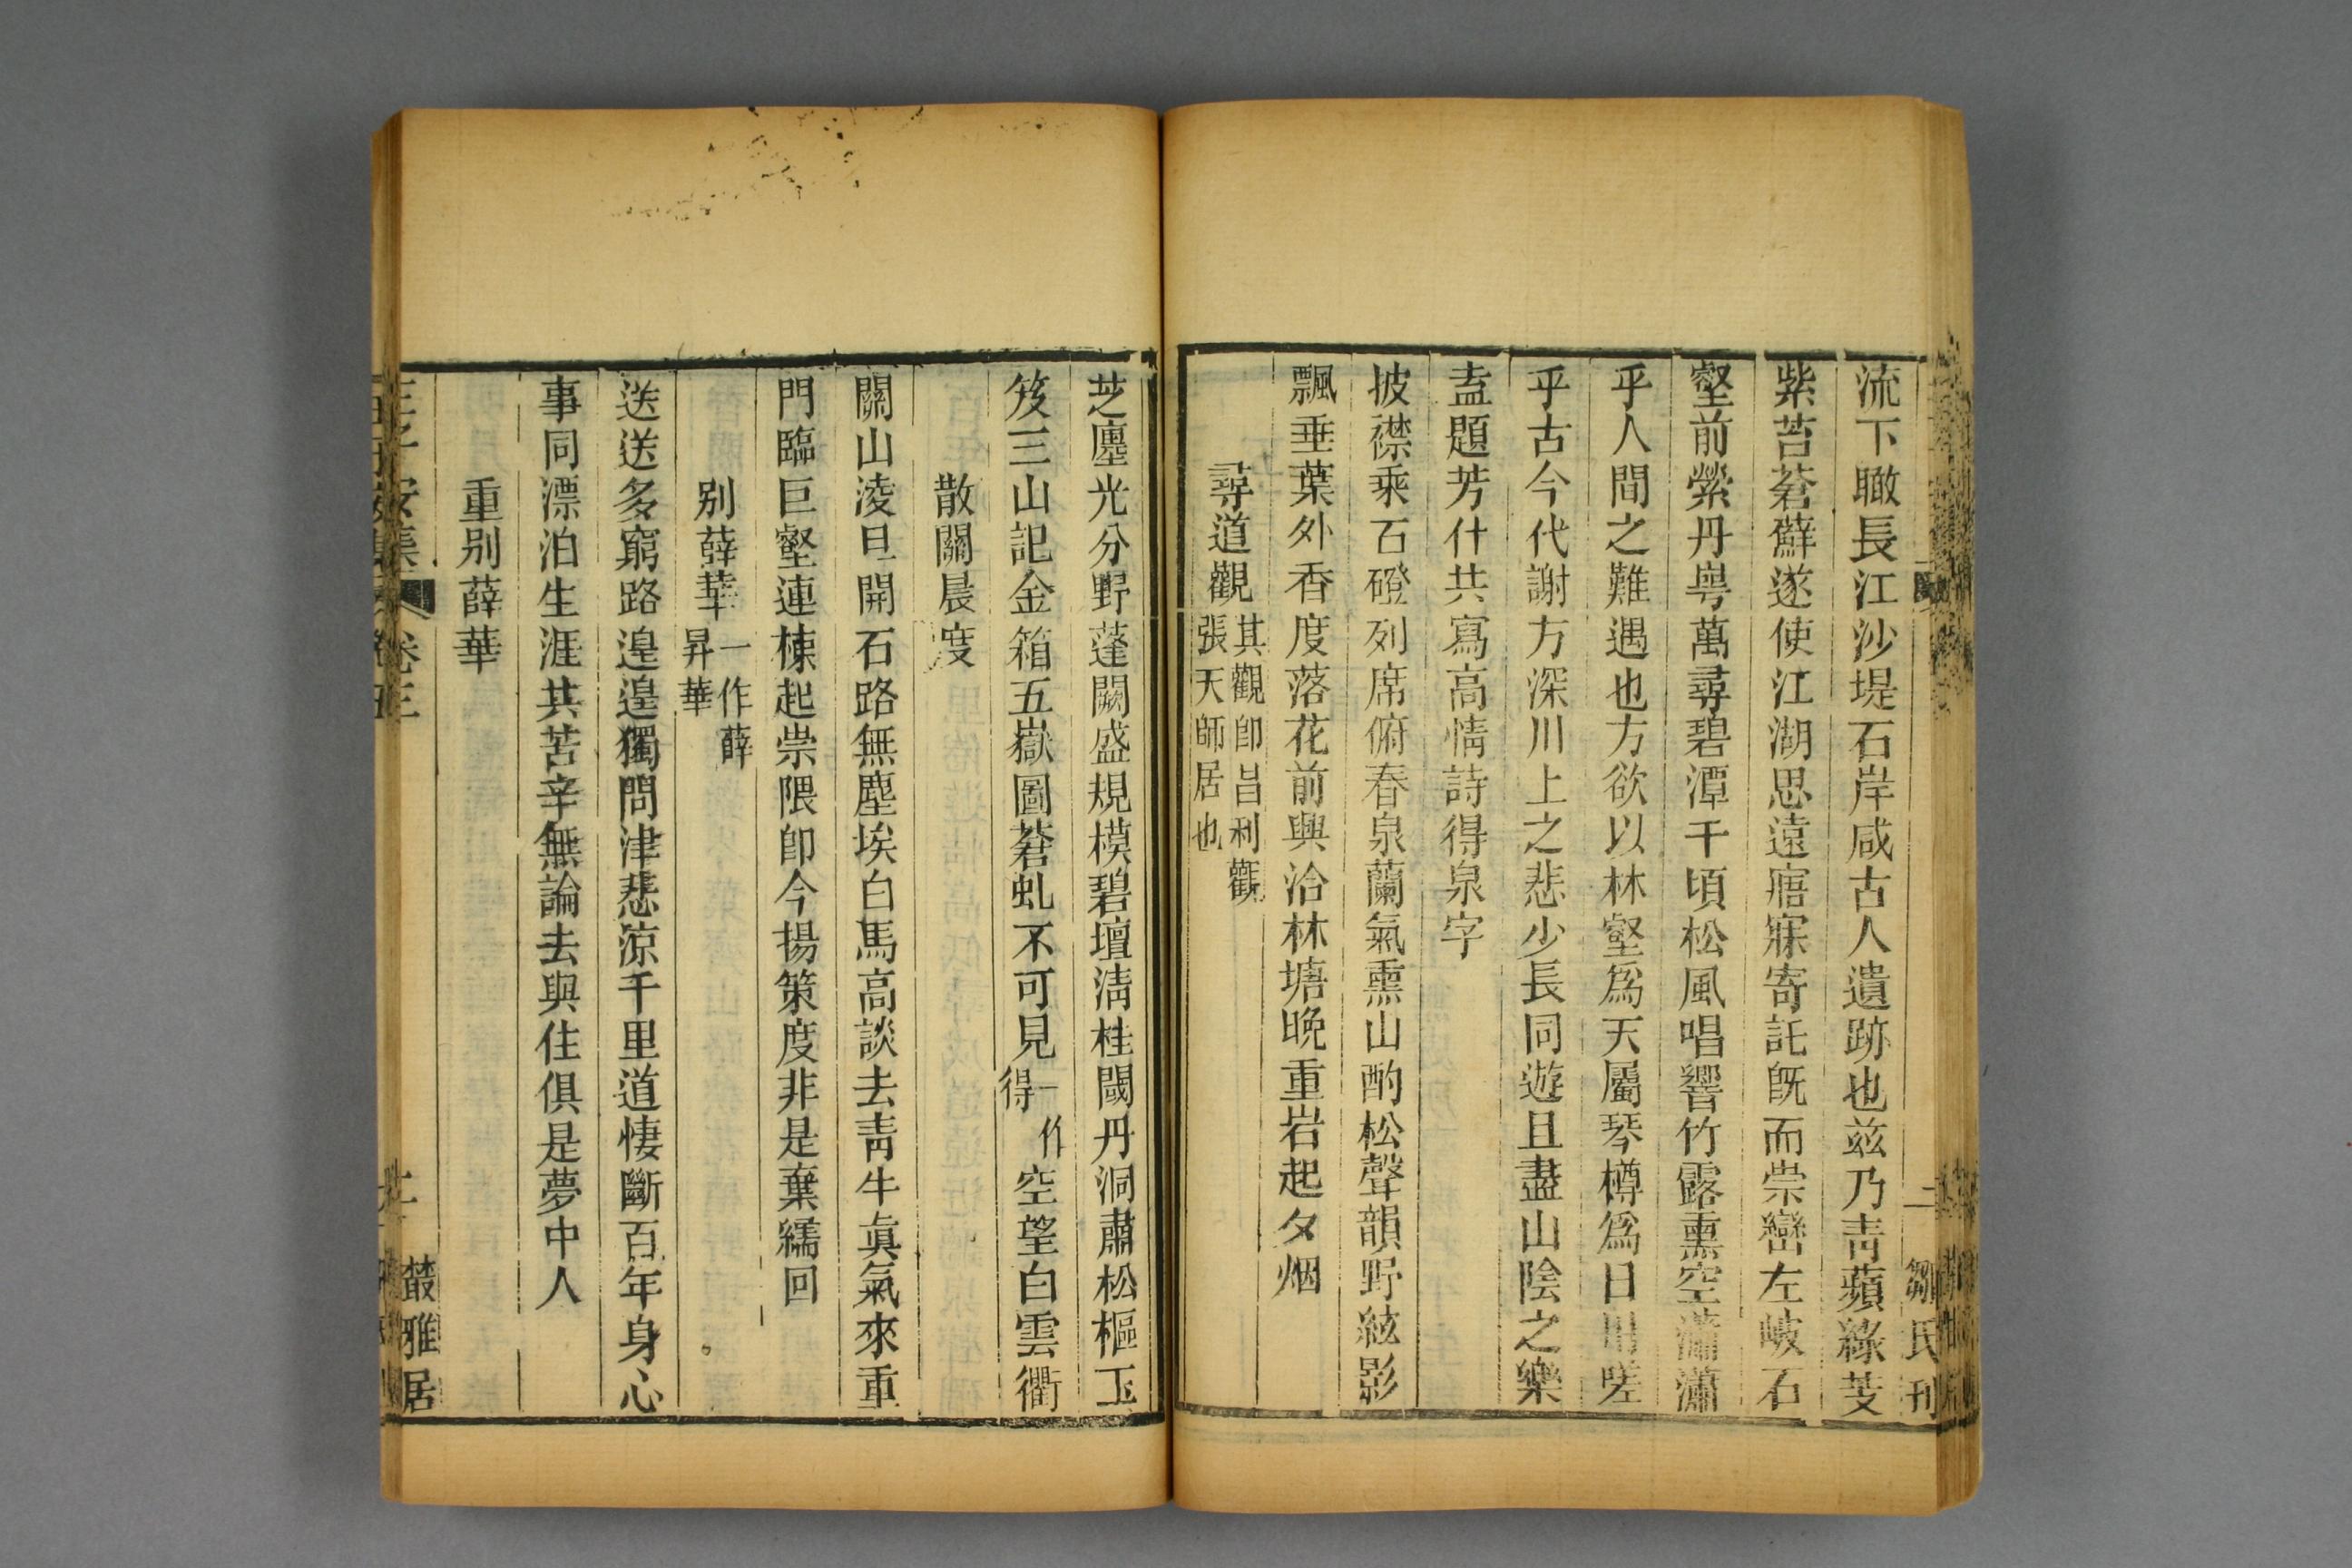 流下瞰長江沙堤石岸咸古人遺跡也茲乃青蘋綠芰
紫苔蒼蘚遂使江湖思遠寤寐寄託旣而崇巒左峻石
壑前縈丹粤萬尋碧潭千頃松風唱響竹露熏空瀟瀟
乎人間之難遇也方欲以林壑爲天屬琴樽爲日用嗟
乎古今代謝方深川上之悲少長同遊且盡山陰之樂
盍題芳什共寫高情詩得泉字
披襟乘石磴列席俯春泉蘭氣熏山酌松聲韻野絃影
飄垂葉外香度落花前興洽林塘晚重岩起夕烟
尋道觀其觀卽昌利觀張天師居也
二 鄒氏刊
芝廛光分野蓬闕盛規模碧壇淸桂閾丹洞肅松樞玉
笈三山記金箱五嶽圖蒼虬不可見一作得空望白雲衢
散關晨度
關山淩旦開石路無塵埃白馬高談去靑牛眞氣來重
門臨巨壑連棟起崇隈卽今揚策度非是棄繻回
別薛華一作薛昇華
送送多窮路遑遑獨問津悲涼千里道悽斷百年身心
事同漂泊生涯共苦辛無論去與住俱是夢中人
重別薛華
王子安集 卷三 叢雅居